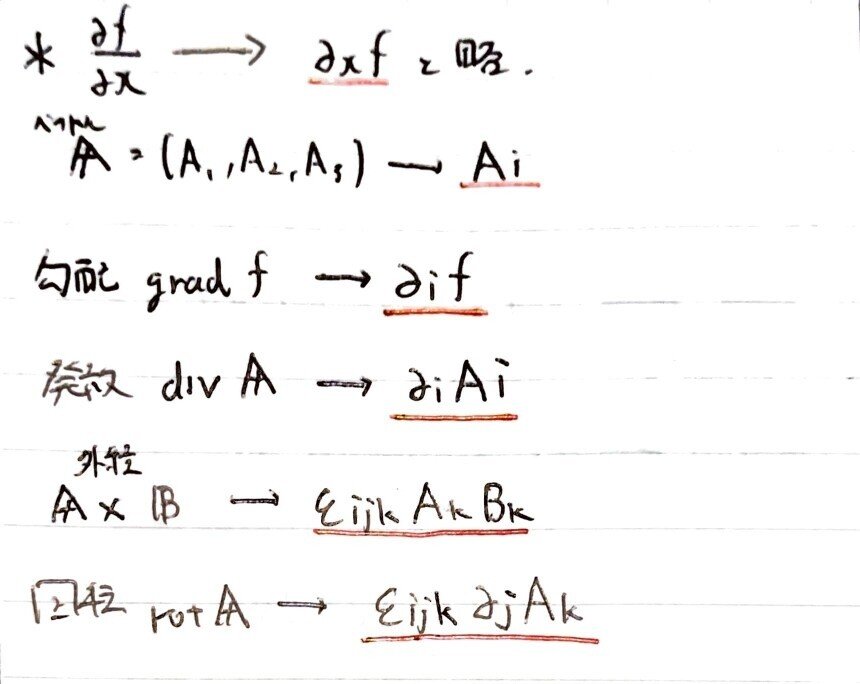 * ∂f/∂x → ∂xf と略.
ベクトル
𝔸 = (A₁, A₂, A₃) → Ai
勾配 grad f → ∂if
発散 div 𝔸 → ∂iAi
外積
𝔸 × 𝔹 → εijk Ak Bk
回転 rot 𝔸 → εijk ∂jAk